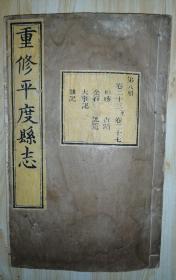 重修平度縣志
第八册
卷二十三之卷二十七
古蹟
金石
大事記
雜記